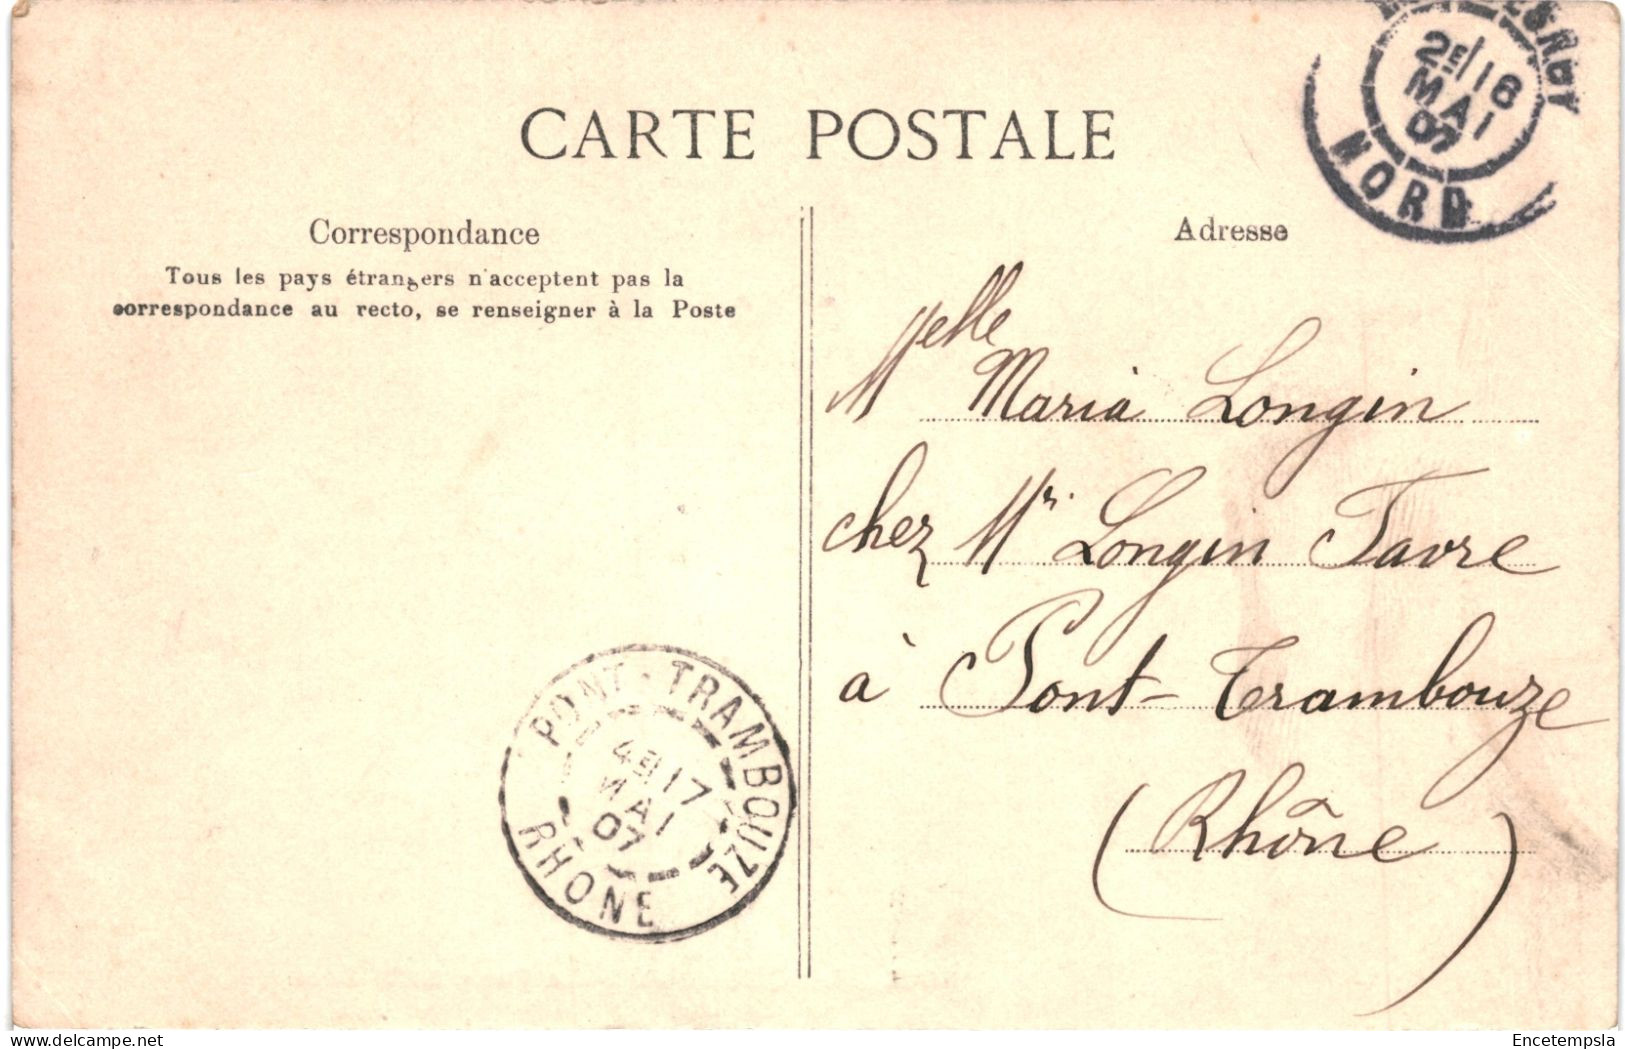 CARTE POSTALE
Correspondance
Tous les pays étrangers n'acceptent pas la
correspondance au recto, se renseigner à la Poste
Adresse
2E/16
MAI
07
NORD
Melle Maria Longin
chez Mr. Longin Favre
à Pont-Trambouze
(Rhône)
PONT-TRAMBOUZE
4E/17
MAI
07
RHONE
Encetempsla